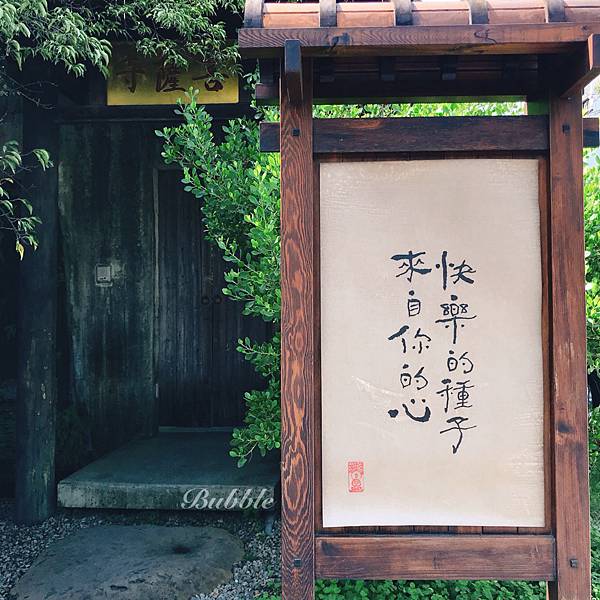 快樂的種子
來自你的心
Bubble